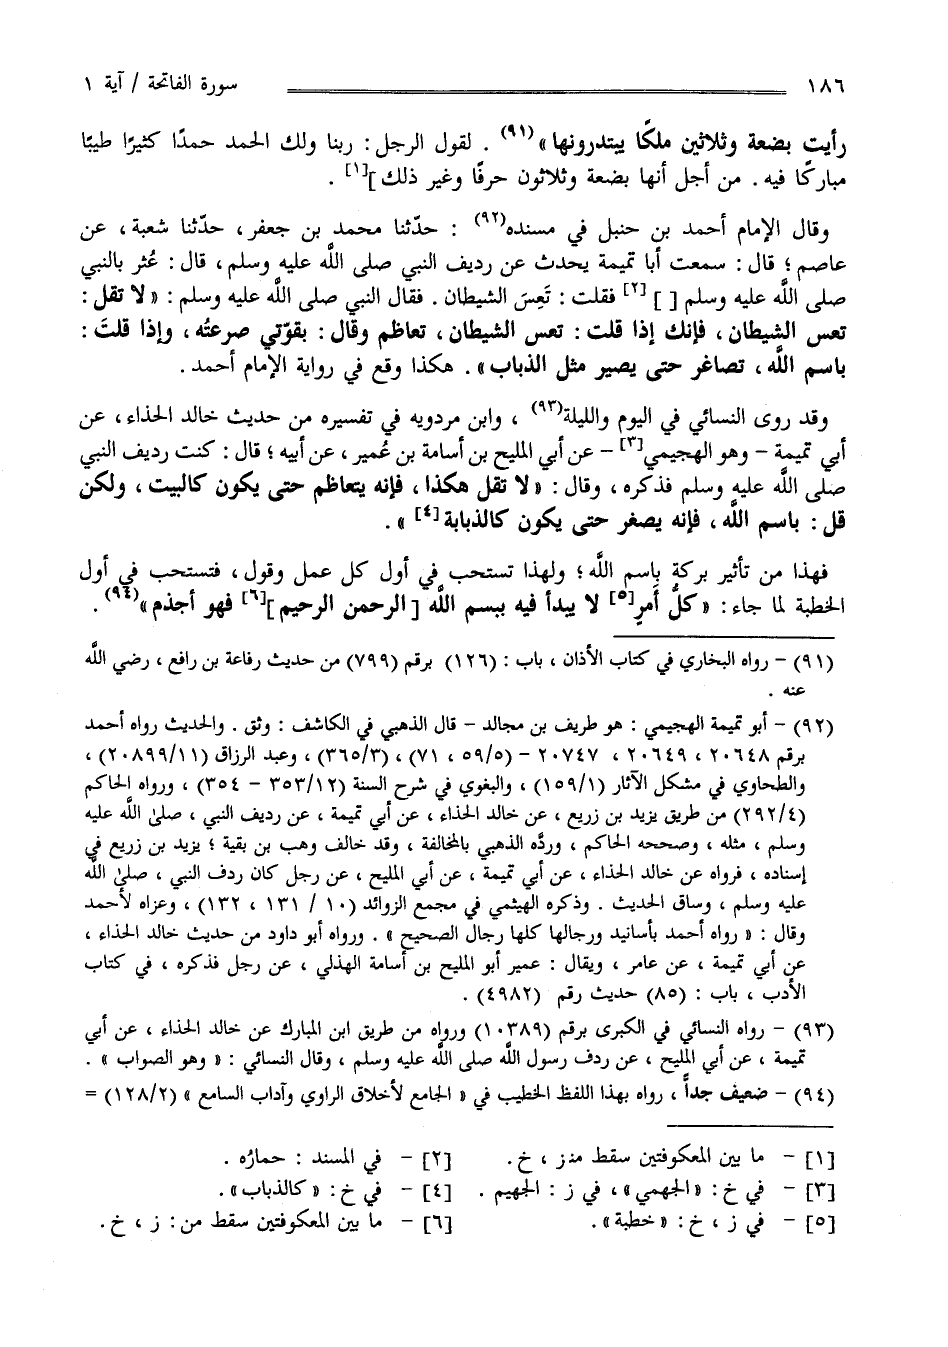 ١٨٦ سورة الفاتحة / آية ١
رأيت بضعة وثلاثين ملكًا يبتدرونها»(٩١) . لقول الرجل : ربنا ولك الحمد حمدًا كثيرًا طيبًا
مباركًا فيه . من أجل أنها بضعة وثلاثون حرفًا وغير ذلك][١] .
وقال الإمام أحمد بن حنبل في مسنده(٩٢) : حدّثنا محمد بن جعفر ، حدّثنا شعبة ، عن
عاصم ؛ قال : سمعت أبا تميمة يحدث عن رديف النبي صلى اللَّه عليه وسلم ، قال : عُثر بالنبي
صلى اللَّه عليه وسلم [ ][٢] فقلت : تَعِسَ الشيطان . فقال النبي صلى اللَّه عليه وسلم : « لا تقل :
تعس الشيطان ، فإنك إذا قلت : تعس الشيطان ، تعاظم وقال : بقوّتي صرعتُه ، وإذا قلتَ :
باسم اللَّه ، تصاغر حتى يصير مثل الذباب» . هكذا وقع في رواية الإمام أحمد .
وقد روى النسائي في اليوم والليلة(٩٣) ، وابن مردويه في تفسيره من حديث خالد الحذاء ، عن
أبي تميمة – وهو الهجيمي[٣] – عن أبي المليح بن أسامة بن عُمير ، عن أبيه ؛ قال : كنت رديف النبي
صلى اللَّه عليه وسلم فذكره ، وقال : « لا تقل هكذا ، فإنه يتعاظم حتى يكون كالبيت ، ولكن
قل : باسم اللَّه ، فإنه يصغر حتى يكون كالذبابة[٤] » .
فهذا من تأثير بركة باسم اللَّه ؛ ولهذا تستحب في أول كل عمل وقول ، فتستحب في أول
الخطبة لما جاء : « كلُّ أمرٍ[٥] لا يبدأ فيه ببسم اللَّه [ الرحمن الرحيم ][٦] فهو أجذم »(٩٤) .
(٩١) – رواه البخاري في كتاب الأذان ، باب : (١٢٦) برقم (٧٩٩) من حديث رفاعة بن رافع ، رضي اللَّه
عنه .
(٩٢) – أبو تميمة الهجيمي : هو طريف بن مجالد – قال الذهبي في الكاشف : وثق . والحديث رواه أحمد
برقم ٢٠٦٤٨ ، ٢٠٦٤٩ ، ٢٠٧٤٧ – (٥٩/٥ ، ٧١) ، (٣٦٥/٣) ، وعبد الرزاق (٢٠٨٩٩/١١) ،
والطحاوي في مشكل الآثار (١٥٩/١) ، والبغوي في شرح السنة (٣٥٣/١٢ – ٣٥٤) ، ورواه الحاكم
(٢٩٢/٤) من طريق يزيد بن زريع ، عن خالد الحذاء ، عن أبي تميمة ، عن رديف النبي ، صلىٰ اللَّه عليه
وسلم ، مثله ، وصححه الحاكم ، وردَّه الذهبي بالمخالفة ، وقد خالف وهب بن بقية ؛ يزيد بن زريع في
إسناده ، فرواه عن خالد الحذاء ، عن أبي تميمة ، عن أبي المليح ، عن رجل كان ردف النبي ، صلىٰ اللَّه
عليه وسلم ، وساق الحديث . وذكره الهيثمي في مجمع الزوائد (١٠ / ١٣١ ، ١٣٢) ، وعزاه لأحمد
وقال : « رواه أحمد بأسانيد ورجالها كلها رجال الصحيح » . ورواه أبو داود من حديث خالد الحذاء ،
عن أبي تميمة ، عن عامر ، ويقال : عمير أبو المليح بن أسامة الهذلي ، عن رجل فذكره ، في كتاب
الأدب ، باب : (٨٥) حديث رقم (٤٩٨٢) .
(٩٣) – رواه النسائي في الكبرى برقم (١٠٣٨٩) ورواه من طريق ابن المبارك عن خالد الحذاء ، عن أبي
تميمة ، عن أبي المليح ، عن ردف رسول اللَّه صلى اللَّه عليه وسلم ، وقال النسائي : « وهو الصواب » .
(٩٤) – ضعيف جداً ، رواه بهذا اللفظ الخطيب في « الجامع لأخلاق الراوي وآداب السامع » (١٢٨/٢) =
[١] – ما بين المعكوفتين سقط من ز ، خ. [٢] – في المسند : حمارُه .
[٣] – في خ : «الجهمي» ، في ز : الجهيم . [٤] – في خ : «كالذباب» .
[٥] – في ز ، خ : «خطبة» . [٦] – ما بين المعكوفتين سقط من : ز ، خ .